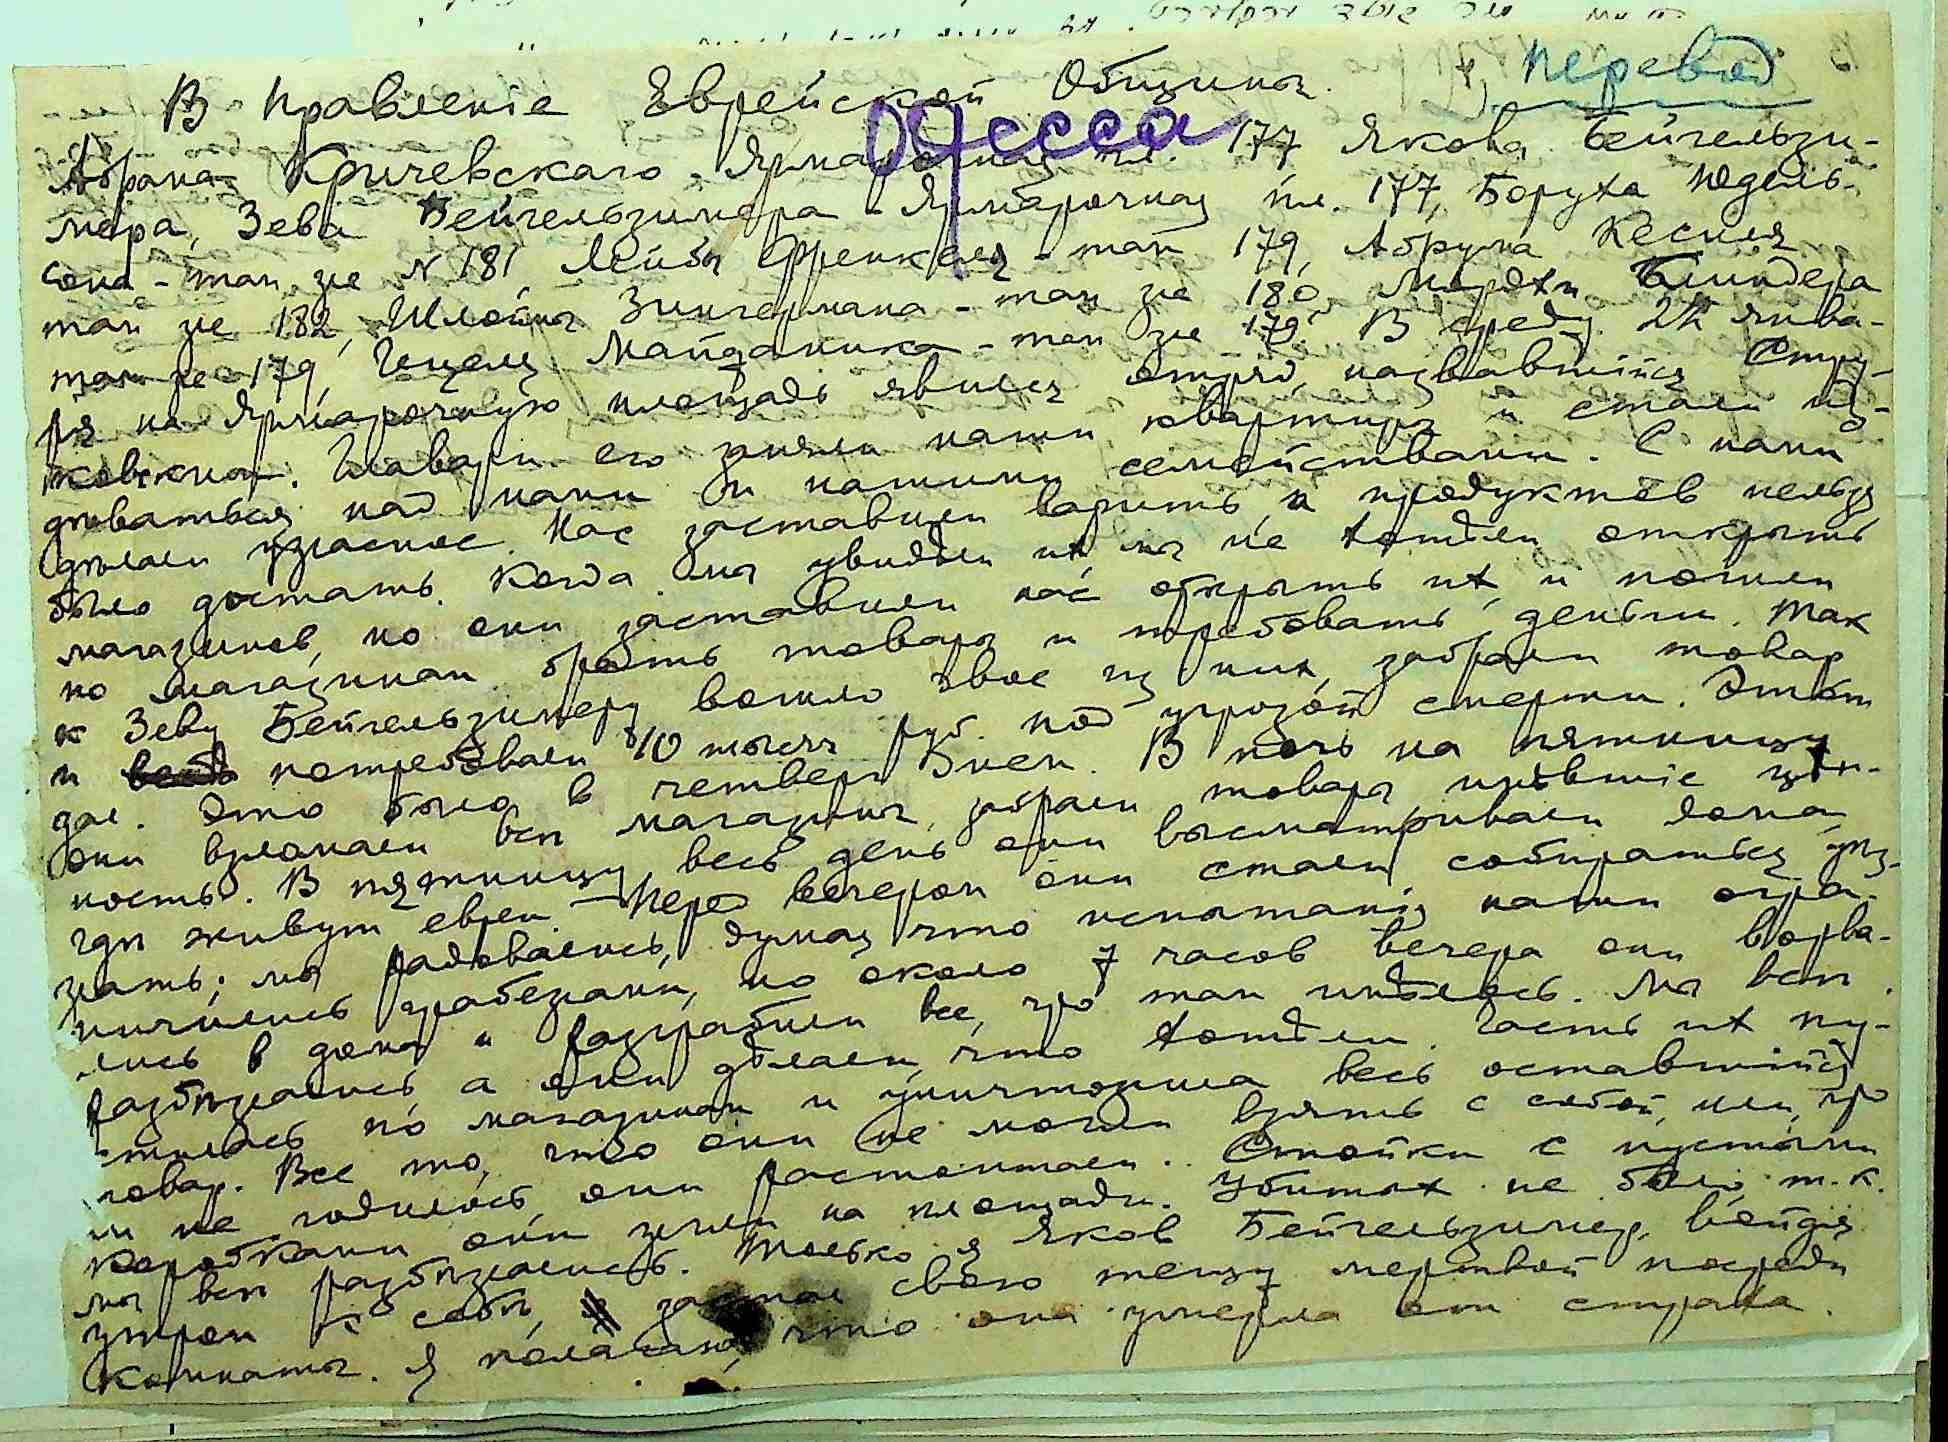 Перевод
В Правленіе Еврейской Общины.
Одесса
Абрама Кричевскаго - Ярмарочная пл. 177 Якова Бейгельзи-
мера, Зева Бейгельзимера - Ярмарочная пл. 177, Боруха Недель-
сона - там же № 181 Лейбы Френкеля - там 179, Абрума Кесиля
там же 182, Шлоймы Зингермана - там же 180, Мордхи Блиндера
там же 179, Гецеля Майданика - там же 179. В среду 22 янва-
ря на Ярмарочную площадь явился отряд, назвавшійся Стру-
ковским. Главари его заняли наши квартиры и стали из-
дѣваться над нами и нашими семействами. С нами
дѣлали ужасное. Нас заставили варить, а продуктов нельзя
было достать. Когда мы увидѣли их, мы не хотѣли открыть
магазинов, но они заставили нас открыть их, и пошли
по магазинам брать товары и требовать деньги. Так
к Зеву Бейгельзимеру вошло двое из них, забрали товар
и потребовали 10 тысяч руб. под угрозой смерти. Этот
дал. Это было в четверг днем. В ночь на пятницу
они взломали всѣ магазины, забрали товары имѣвшіе цѣн-
ность. В пятницу весь день они высматривали дома,
гдѣ живут евреи. Перед вечером они стали собираться уѣз-
жать; мы радовались, думая что испытанія наши огра-
ничились грабежами, но около 7 часов вечера они ворва-
лись в дома и разграбили все, что там имѣлось. Мы всѣ
разбѣжались, а они дѣлали, что хотѣли. Часть их пу-
стилась по магазинам и уничтожила весь оставшійся
товар. Все то, что они не могли взять с собой, или, что
им не годилось, они растоптали. Стойки с пустыми
коробками они жгли на площади. Убитых не было, т.к.
мы всѣ разбѣжались. Только я Яков Бейгельзимер, войдя
утром к себѣ, застал свою тещу мертвой посреди
комнаты. Я полагаю, что она умерла от страха.